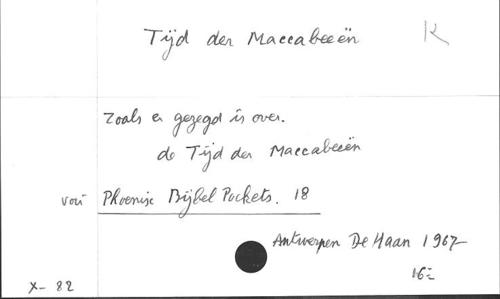 Tijd der Maccabeeën K
Zoals er gezegd is over.
de Tijd der Maccabeeën
voir Phoenix Bijbel Pockets. 18
Antwerpen De Haan 1967
16=
X- 82